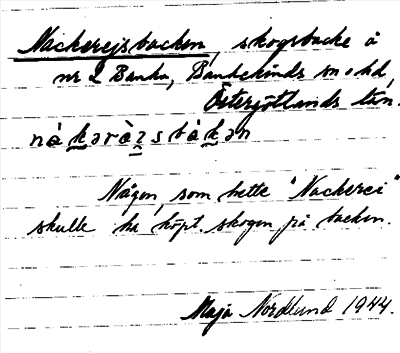 Nackerejsbacken, skogsbacke å
nr 2 Banka, Bankekinds sn o hd,
Östergötlands län.
nàkəràzsbàkən
Någon, som hette "Nackerei"
skulle ha köpt skogen på backen.
Maja Nordlund 1944.